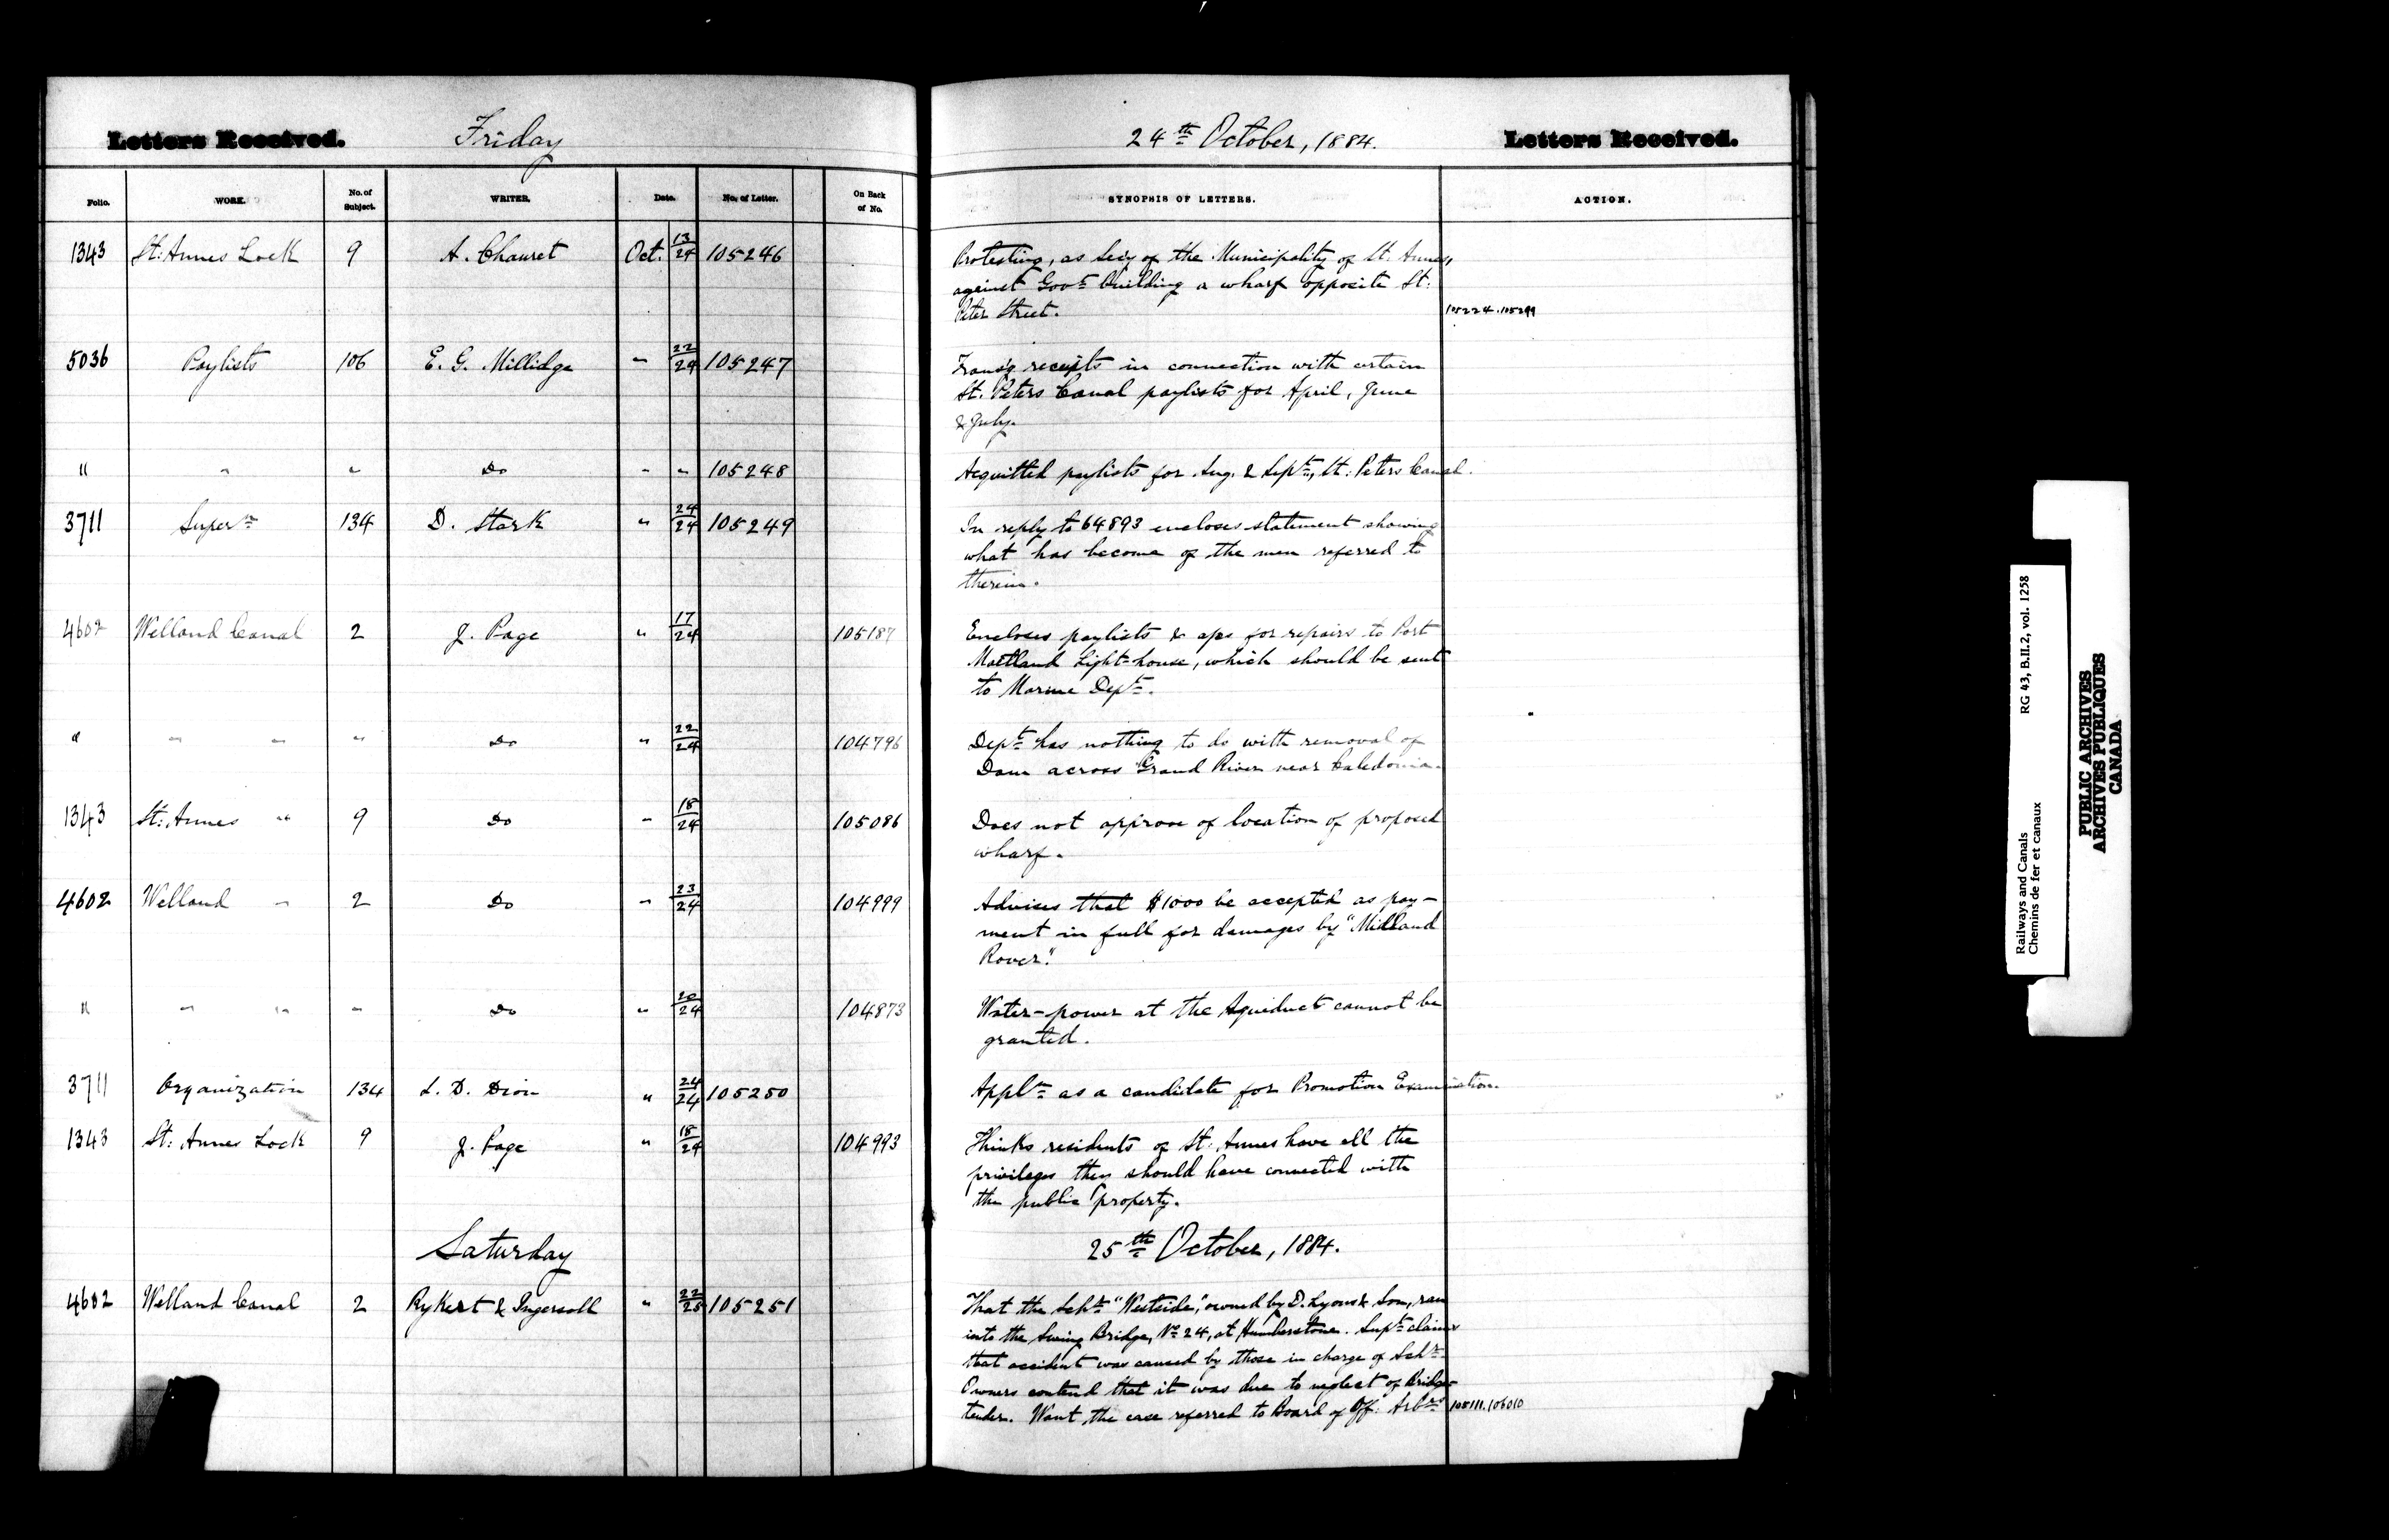 Letters Received. Friday 24th October, 1884. Letters Received.
Folio. WORK. No. of Subject. WRITER. Date. No. of Letter. On Back of No. SYNOPSIS OF LETTERS. ACTION.
1343 St: Annes Lock 9 A. Chauret Oct. 13/24 105246 Protesting, as Secy of the Municipality of St. Annes,
against Govt building a wharf opposite St:
Peter Street. 105224.105299
5036 Paylists 106 E. G. Millidge " 22/24 105247 Transg receipts in connection with certain
St. Peters Canal paylists for April, June
& July.
" " " Do " " 105248 Acquitted paylists for Aug. & Septr, St: Peters Canal.
3711 Supern 134 D. Stark " 24/24 105249 In reply to 64893 encloses statement showing
what has become of the men referred to
therein.
4602 Welland Canal 2 J. Page " 17/24 105187 Encloses paylists & a/cs for repairs to Port
Maitland Light-house, which should be sent
to Marine Dept.
" " " " Do " 22/24 104796 Dept has nothing to do with removal of
Dam across Grand River near Caledonia.
1343 St: Annes " 9 Do " 18/24 105086 Does not approve of location of proposed
wharf.
4602 Welland " 2 Do " 23/24 104999 Advises that $1000 be accepted as pay-
ment in full for damages by "Midland
Rover".
" " " " Do " 20/24 104873 Water-power at the Aqueduct cannot be
granted.
3711 Organization 134 L. D. Dion " 24/24 105250 Appln as a candidate for Promotion Examination.
1343 St: Annes Lock 9 J. Page " 18/24 104993 Thinks residents of St: Annes have all the
privileges they should have connected with
the public property.
Saturday 25th October, 1884.
4602 Welland Canal 2 Rykert & Ingersoll " 22/25 105251 That the Schr "Westside," owned by D. Lyons & Son, ran
into the Swing Bridge, No 24, at Humberstone. Supt claims
that accident was caused by those in charge of Schr
Owners contend that it was due to neglect of Bridge-
tender. Want the case referred to Board of Off: Arbrs 105111.106010
Railways and Canals RG 43, B.II.2, vol. 1258
Chemins de fer et canaux
PUBLIC ARCHIVES
ARCHIVES PUBLIQUES
CANADA